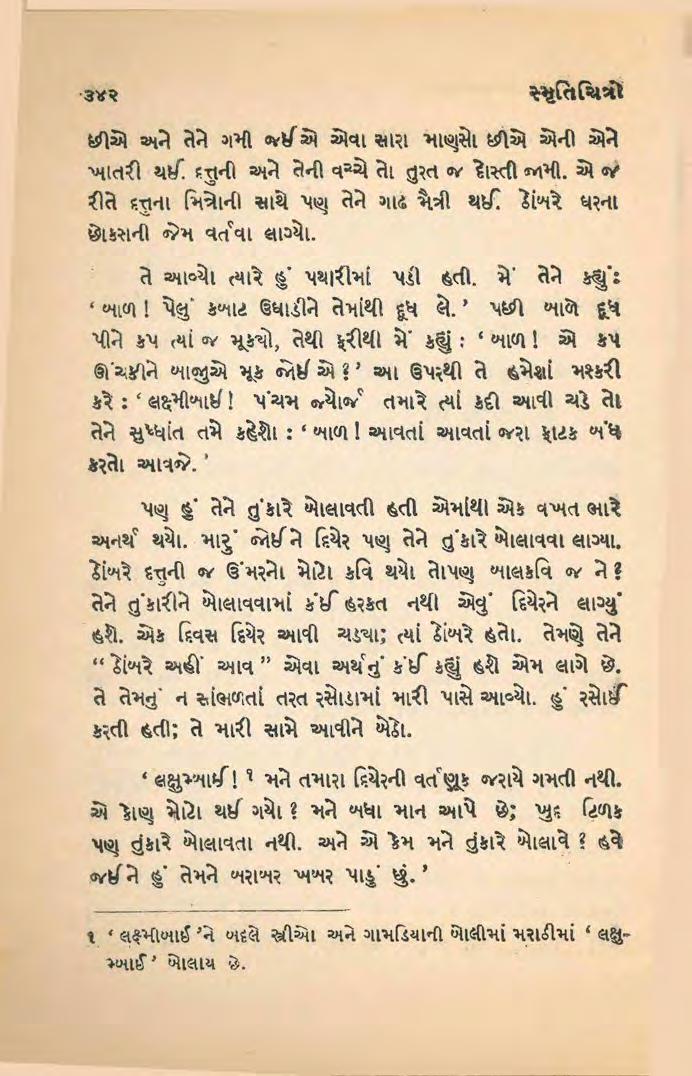 ૩૪૨ સ્મૃતિચિત્રો
છીએ અને તેને ગમી જઈએ એવા સારા માણસો છીએ એની એને
ખાતરી થઈ. દત્તુની અને તેની વચ્ચે તો તુરત જ દોસ્તી જામી. એ જ
રીતે દત્તુના મિત્રોની સાથે પણ તેને ગાઢ મૈત્રી થઈ. ઠોંબરે ઘરના
છોકરાની જેમ વર્તવા લાગ્યો.
તે આવ્યો ત્યારે હું પથારીમાં પડી હતી. મેં તેને કહ્યું:
‘ બાળ ! પેલું કબાટ ઉઘાડીને તેમાંથી દૂધ લે. ’ પછી બાળે દૂધ
પીને કપ ત્યાં જ મૂક્યો, તેથી ફરીથી મેં કહ્યું : ‘ બાળ ! એ કપ
ઊંચકીને બાજુએ મૂક જોઈએ ? ’ આ ઉપરથી તે હમેશાં મશ્કરી
કરે : ‘ લક્ષ્મીબાઈ ! પંચમ જ્યોર્જ તમારે ત્યાં કદી આવી ચડે તો
તેને સુધ્ધાંત તમે કહેશો : ‘ બાળ ! આવતાં આવતાં જરા ફાટક બંધ
કરતો આવજે. ’
પણ હું તેને તુંકારે બોલાવતી હતી એમાંથી એક વખત ભારે
અનર્થ થયો. મારું જોઈને દિયેર પણ તેને તુંકારે બોલાવવા લાગ્યા.
ઠોંબરે દત્તુની જ ઉંમરનો મોટો કવિ થયો તોપણ બાલકવિ જ ને ?
તેને તુંકારીને બોલાવવામાં કંઈ હરકત નથી એવું દિયેરને લાગ્યું
હશે. એક દિવસ દિયેર આવી ચડયા; ત્યાં ઠોંબરે હતો. તેમણે તેને
“ ઠોંબરે અહીં આવ ” એવા અર્થનું કંઈ કહ્યું હશે એમ લાગે છે.
તે તેમનું ન સાંભળતાં તરત રસોડામાં મારી પાસે આવ્યો. હું રસોઈ
કરતી હતી; તે મારી સામે આવીને બેઠો.
‘ લક્ષુમ્બાઈ ! ૧ મને તમારા દિયેરની વર્તણૂક જરાયે ગમતી નથી.
એ કોણ મોટો થઈ ગયો ? મને બધા માન આપે છે; ખુદ ટિળક
પણ તુંકારે બોલાવતા નથી. અને એ કેમ મને તુંકારે બોલાવે ? હવે
જઈને હું તેમને બરાબર ખબર પાડું છું. ’
૧ ‘ લક્ષ્મીબાઈ ’ને બદલે સ્ત્રીઓ અને ગામડિયાની બોલીમાં મરાઠીમાં ‘ લક્ષુ-
મ્બાઈ ’ બોલાય છે.